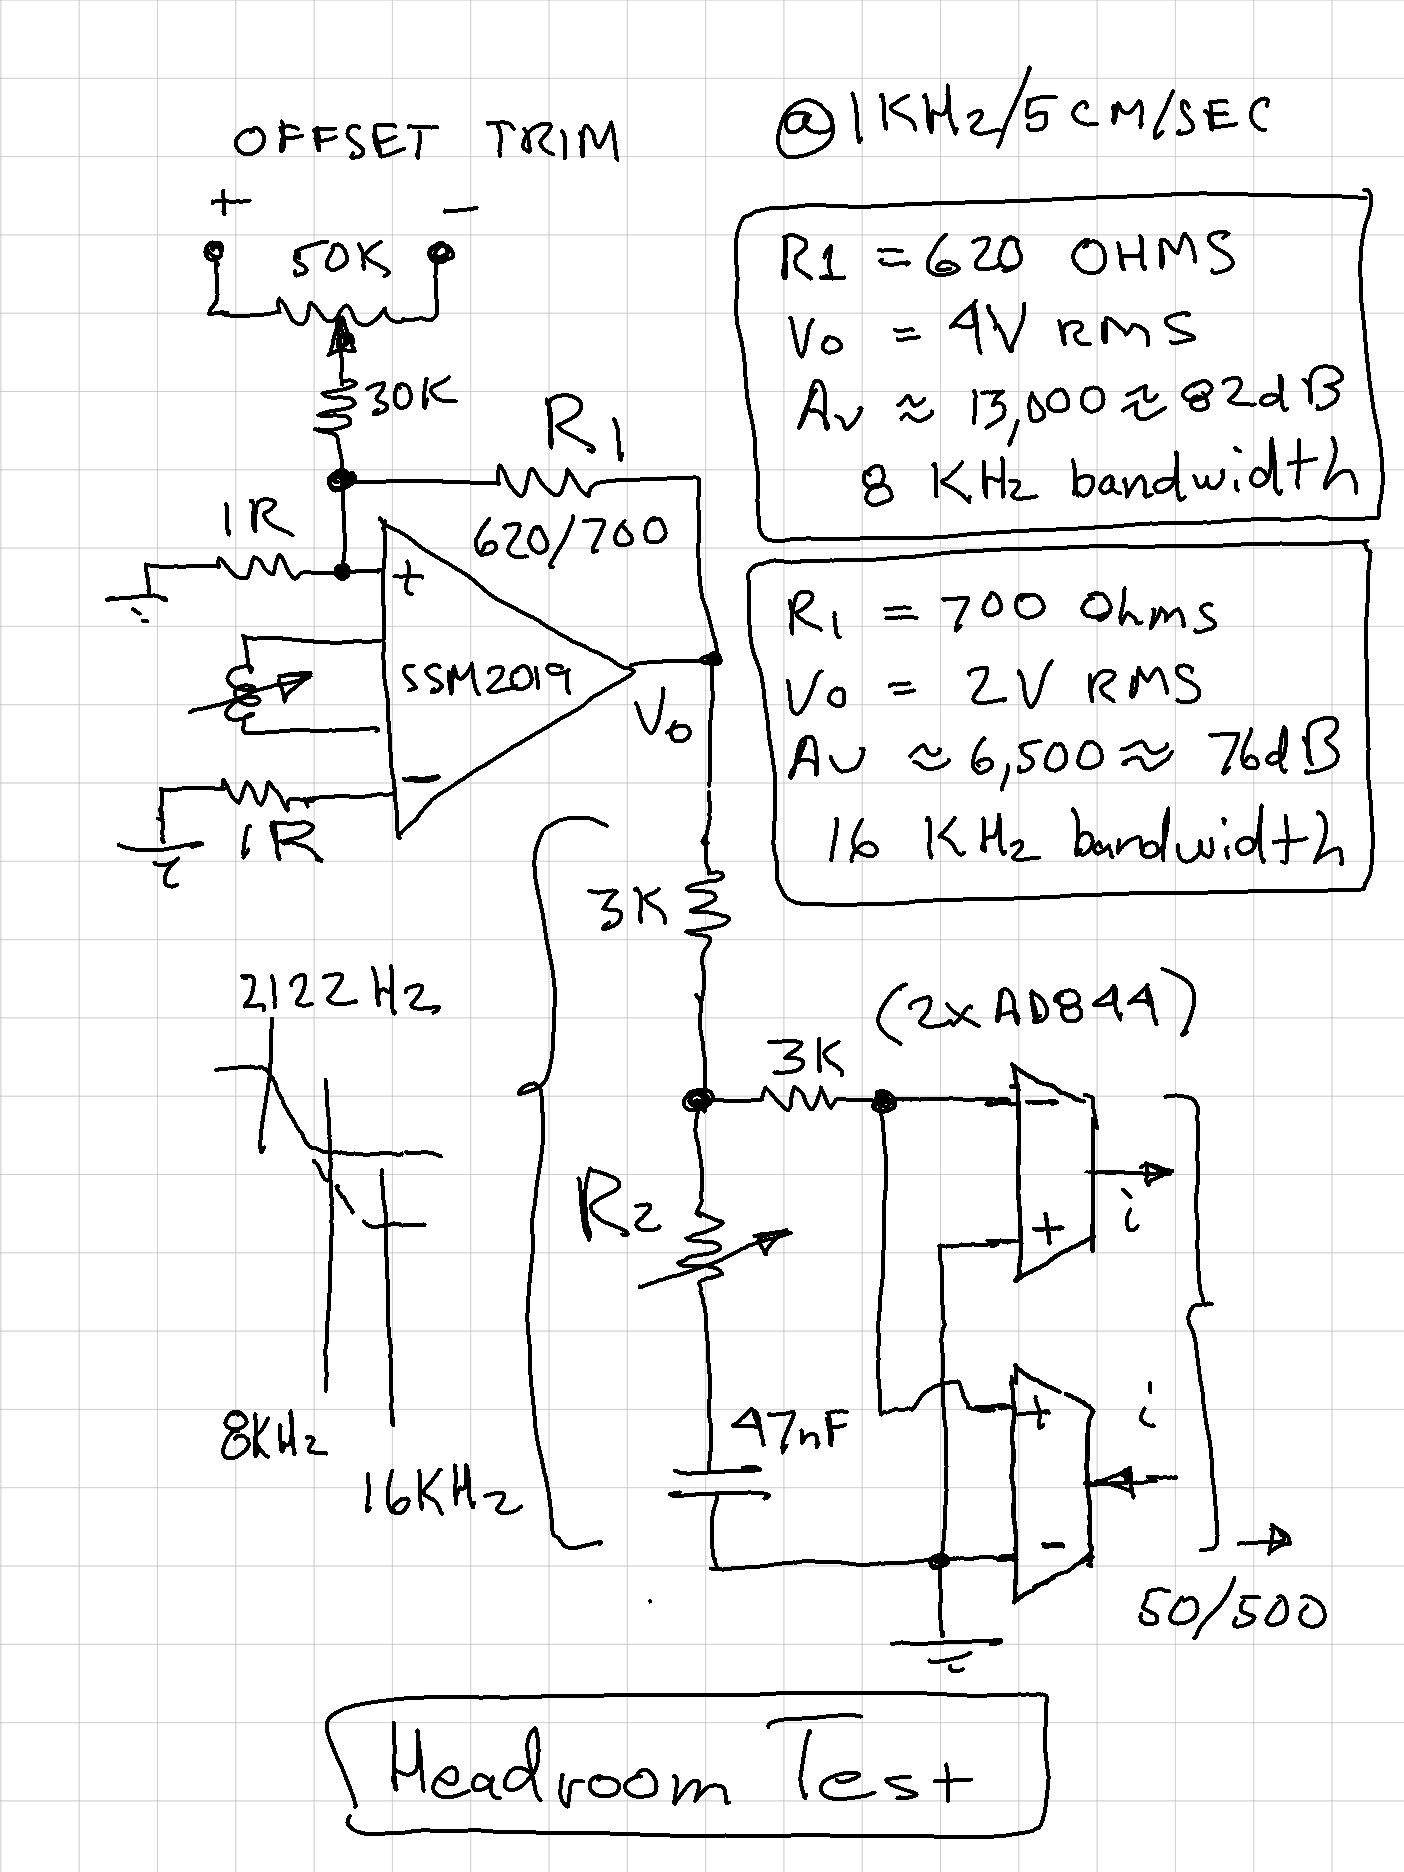 OFFSET TRIM
+ −
50K
30K
R1
620/700
1R
+
SSM2019
Vo
−
1R
@ 1KHz/5CM/SEC
R1 = 620 OHMS
Vo = 4V RMS
Av ≈ 13,000 ≈ 82dB
8 KHz bandwidth
R1 = 700 Ohms
Vo = 2V RMS
Av ≈ 6,500 ≈ 76dB
16 KHz bandwidth
3K
2122Hz
8KHz
16KHz
(2xAD844)
3K
−
+
i
R2
47nF
+
−
i
50/500
Headroom Test